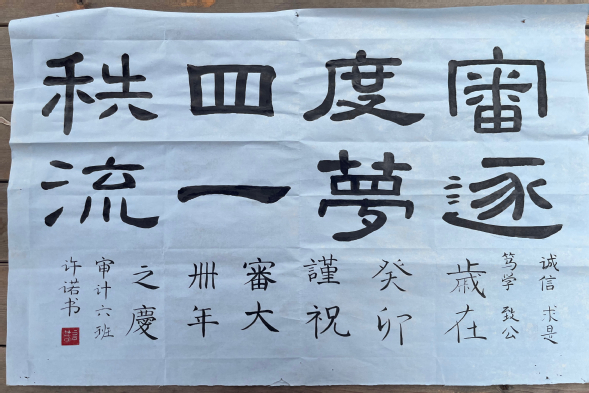 審度四秩
逐夢一流
诚信 求是
笃学 致公
歲在
癸卯
謹祝
審大
卌年
之慶
审计六班
许诺书